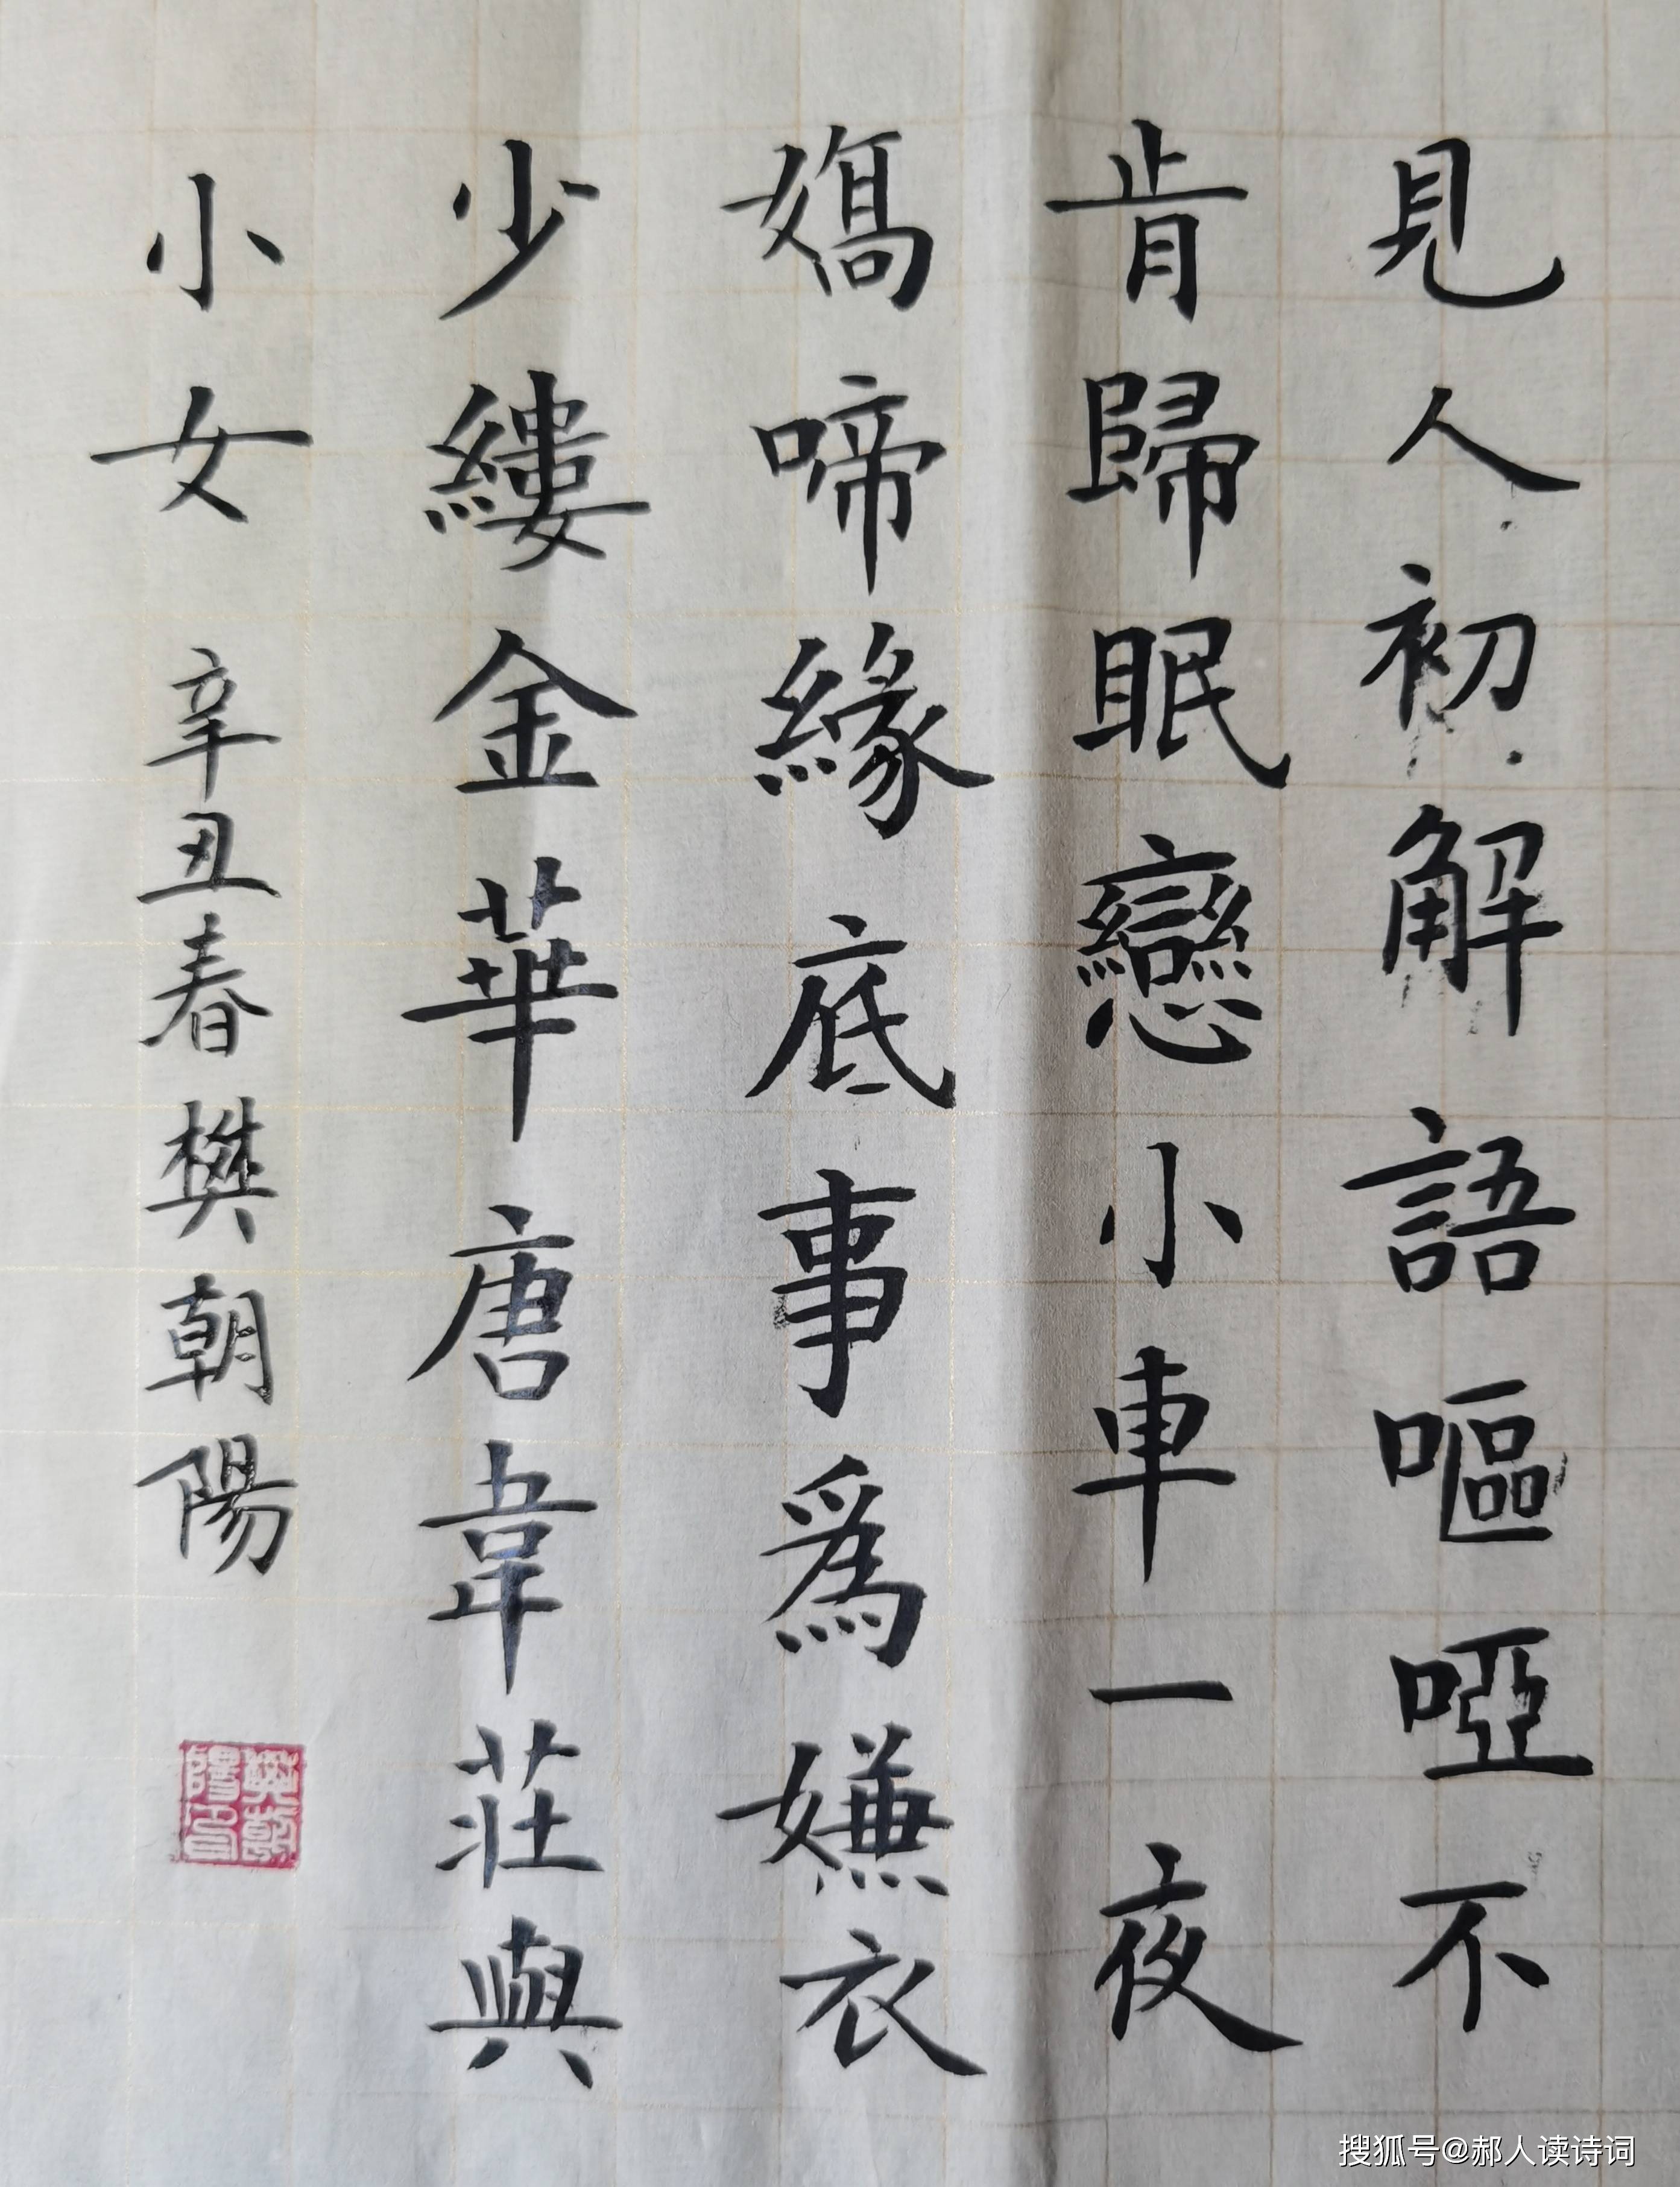 見人初解語嘔啞不
肯歸眠戀小車一夜
嬌啼緣底事爲嫌衣
少縷金華唐韋莊與
小女 辛丑春樊朝陽
樊朝陽印
搜狐号@郝人读诗词